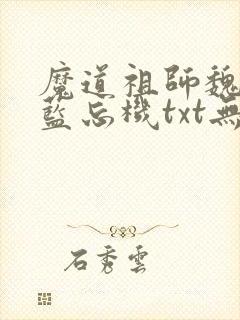 魔道祖師魏
藍忘機txt無
石秀雲